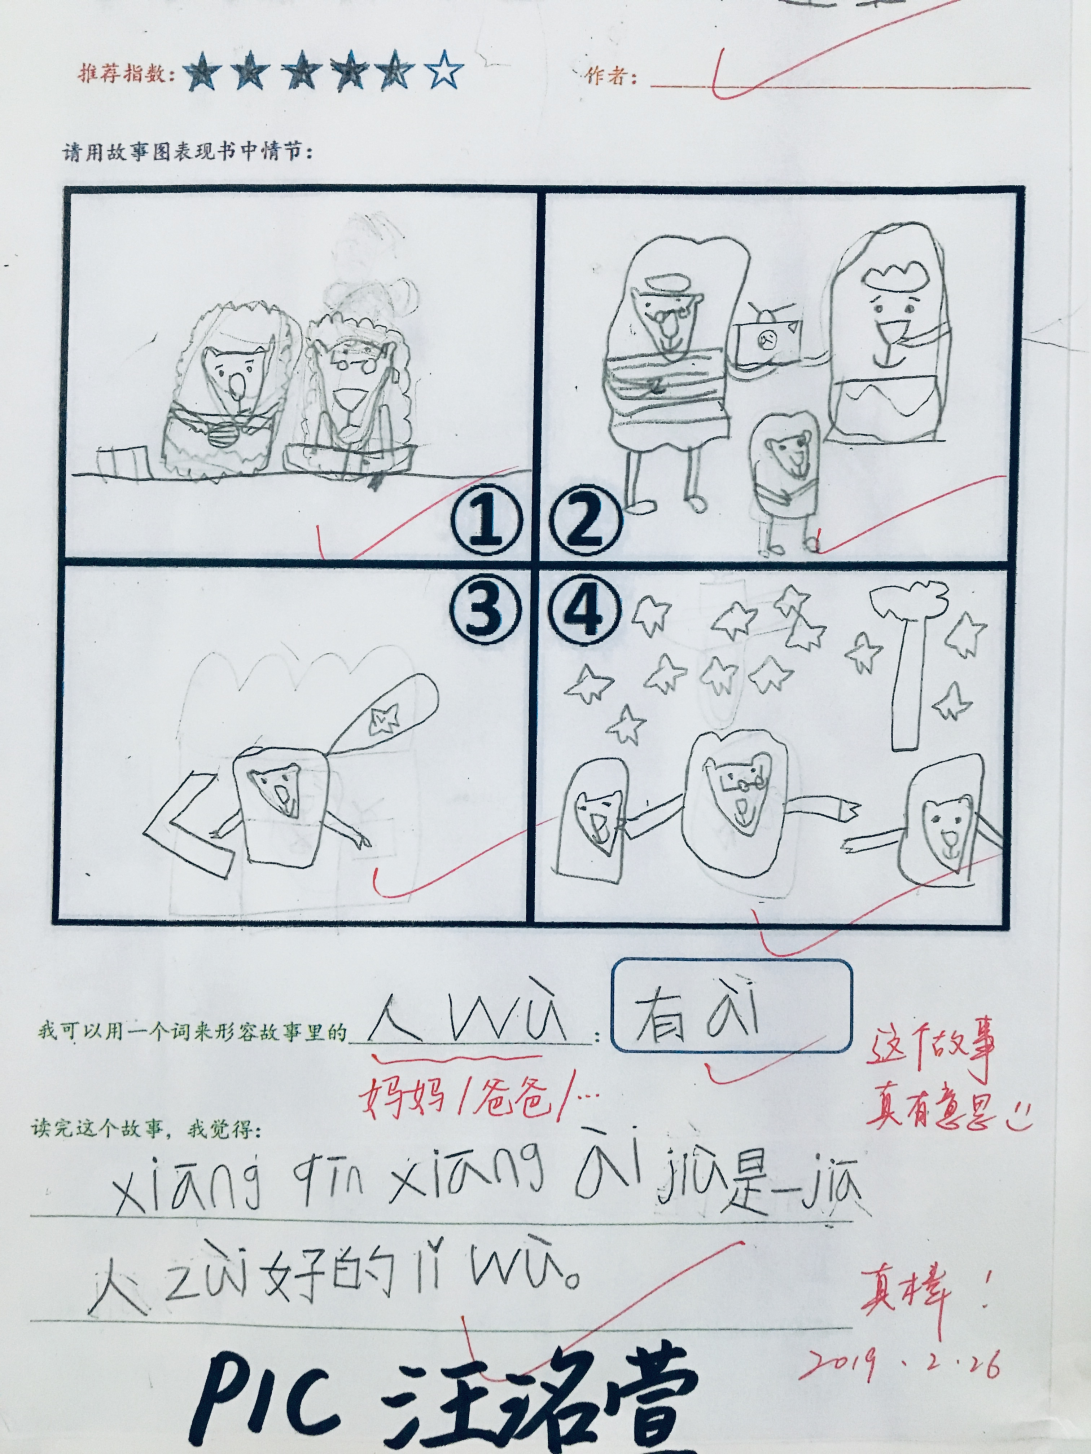 推荐指数：
作者：
请用故事图表现书中情节：
①
②
③
④
我可以用一个词来形容故事里的人wù：有ài
妈妈/爸爸/…
这个故事
真有意思
读完这个故事，我觉得：
xiāng qīn xiāng ài jiù是一jiā
人zùi好的lǐ wù。
真棒！
2019.2.26
PIC 汪洺萱